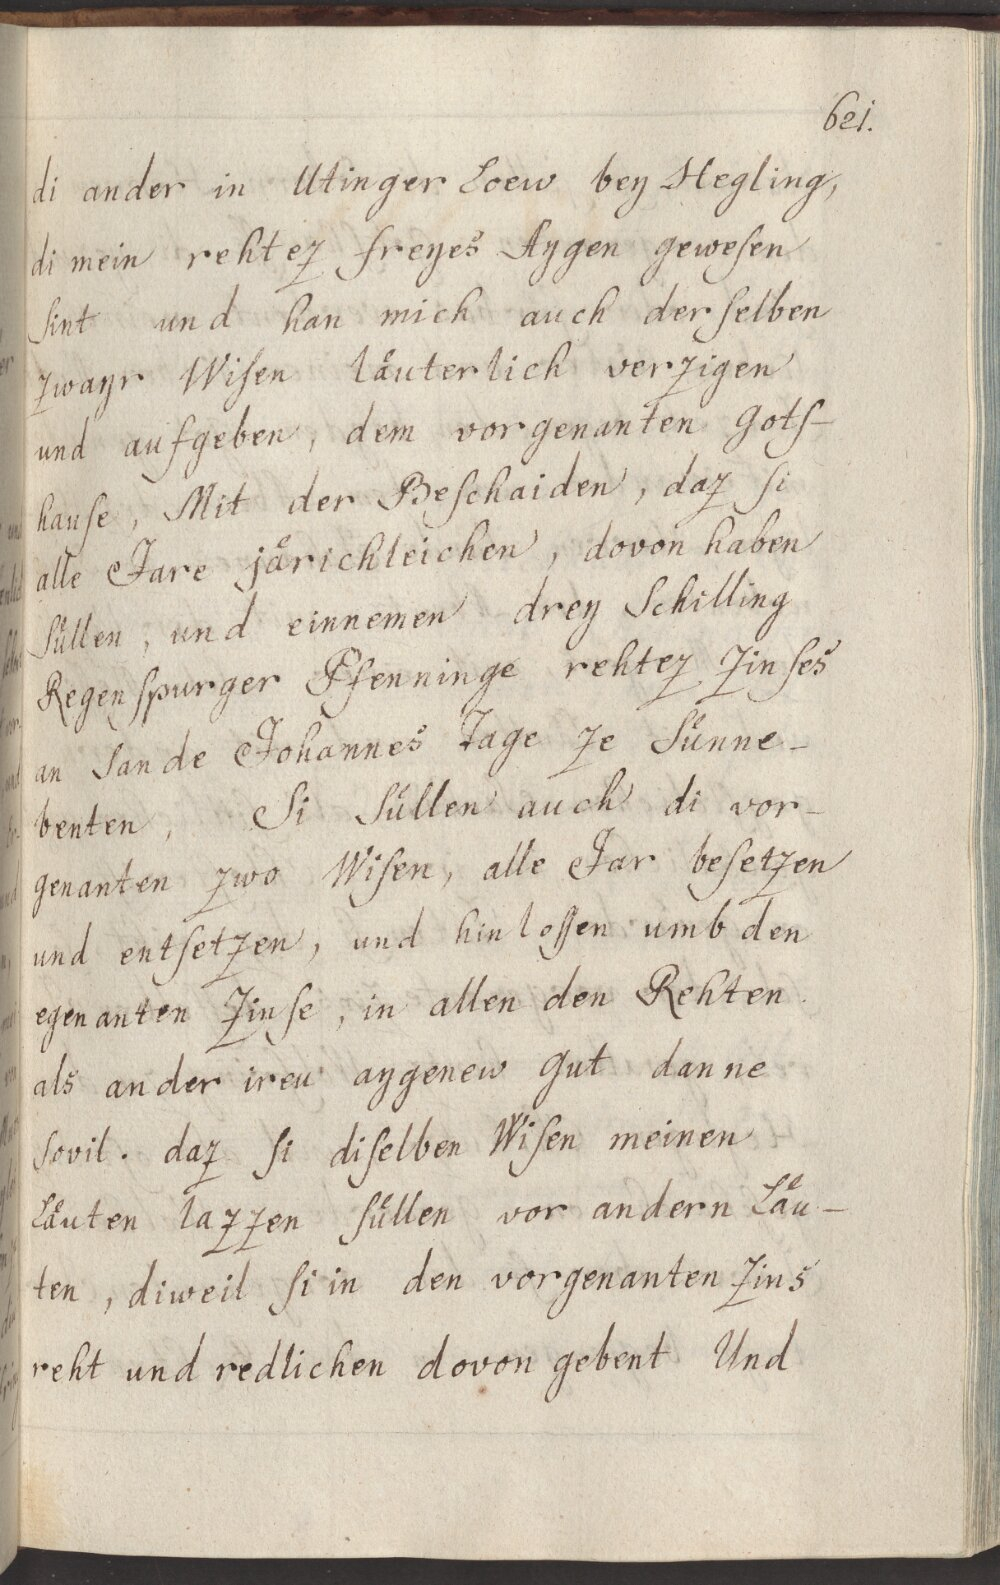 621.
di ander in Utinger Loew bey Hegling,
di mein rehtez freyes Aygen gewesen
sint und han mich auch der selben
zwayr Wisen låuterlich verzigen
und aufgeben, dem vorgenanten Gots-
hause, Mit der Beschaiden, daz si
alle Jare jårichleichen, dovon haben
sůllen, und einnemen drey Schilling
Regenspurger Pfenninge rehtez Zinses
an Sande Johannes Tage ze Sůnne-
benten, Si Sůllen auch di vor-
genanten zwo Wisen, alle Jar besetzen
und entsetzen, und hinlossen umb den
egenanten Zinse, in allen den Rehten
als ander ireu aygenew Gut danne
sovil. daz si diselben Wisen meinen
Låuten lazzen sůllen vor andern Låu-
ten, diweil si in den vorgenanten Zins
reht und redlichen dovon gebent Und